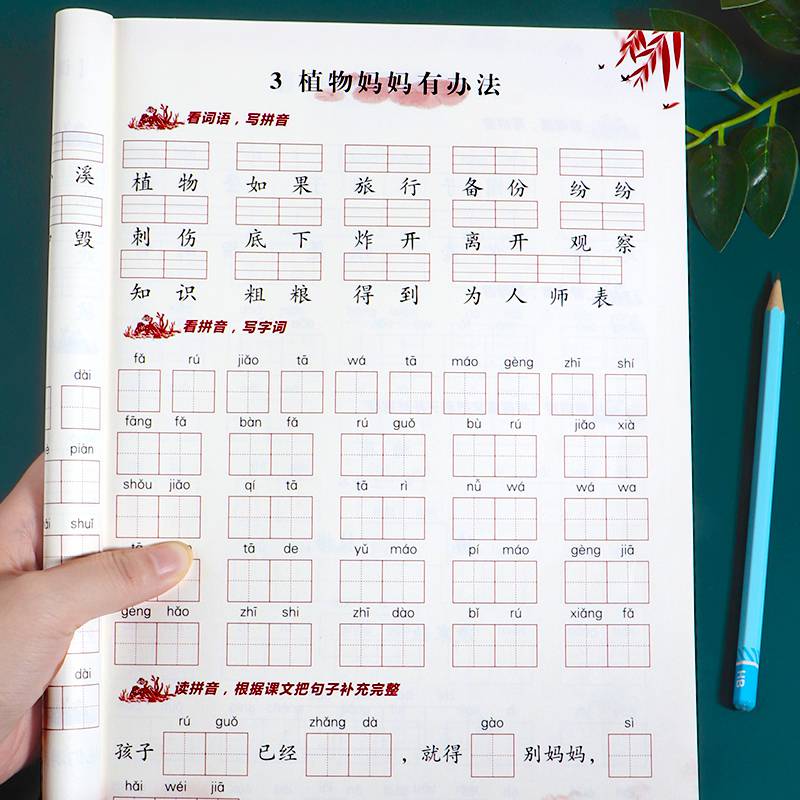 3 植物妈妈有办法
看词语，写拼音
植物 如果 旅行 备份 纷纷
刺伤 底下 炸开 离开 观察
知识 粗粮 得到 为人师表
看拼音，写字词
fǎ rú jiǎo tā wá tā máo gèng zhī shí
fāng fǎ bàn fǎ rú guǒ bù rú jiǎo xià
shǒu jiǎo qí tā tā rì nǚ wá wá wa
tā de yǔ máo pí máo gèng jiā
gèng hǎo zhī shi zhī dào bǐ rú xiǎng fǎ
读拼音，根据课文把句子补充完整
rú guǒ zhǎng dà gào sì
孩子 已经 ，就得 别妈妈，
hǎi wéi jiā
溪
毁
dài
piàn
shuǐ
dài
HB